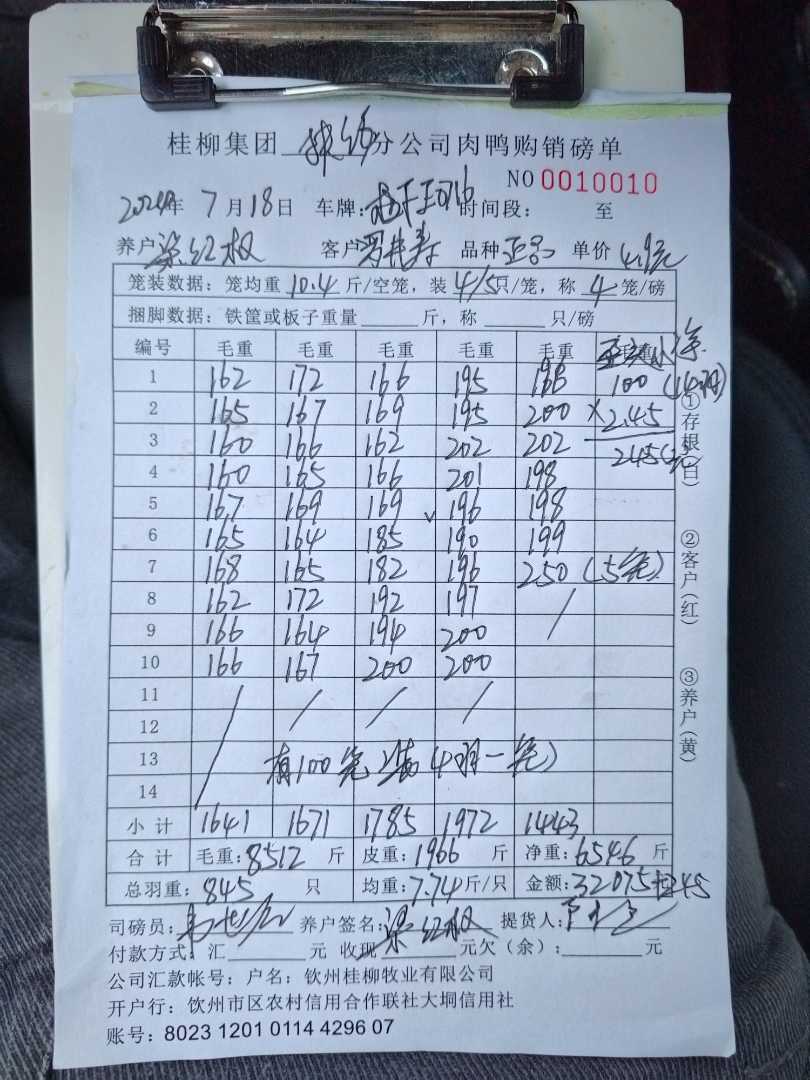 桂柳集团 分公司肉鸭购销磅单
NO 0010010
2024年 7月18日 车牌: 时间段: 至
养户 梁红权 客户 品种 单价 4.9元
笼装数据: 笼均重 10.4 斤/空笼, 装 4/5只/笼, 称 4 笼/磅
捆脚数据: 铁筐或板子重量 斤, 称 只/磅
编号 毛重 毛重 毛重 毛重 毛重
1 162 172 166 195 100 (14羽)
2 165 167 169 195 200 ×2.45
3 160 166 162 202 202 245(元)
4 160 165 166 201 198
5 167 169 169 196 198
6 165 164 185 190 199
7 168 165 182 196 250 (5笼)
8 162 172 192 197 /
9 166 164 194 200
10 166 167 200 200
11
12
13 有100笼装(4羽一笼)
14
小计 1641 1671 1785 1972 1443
合计 毛重: 8512 斤 皮重: 1966 斤 净重: 6546 斤
总羽重: 845 只 均重: 7.74斤/只 金额: 32075+245
司磅员: 养户签名: 梁红权 提货人:
付款方式: 汇 元 收现 元欠(余): 元
公司汇款帐号: 户名: 钦州桂柳牧业有限公司
开户行: 饮州市区农村信用合作联社大垌信用社
账号: 8023 1201 0114 4296 07
①存根(白)
②客户(红)
③养户(黄)